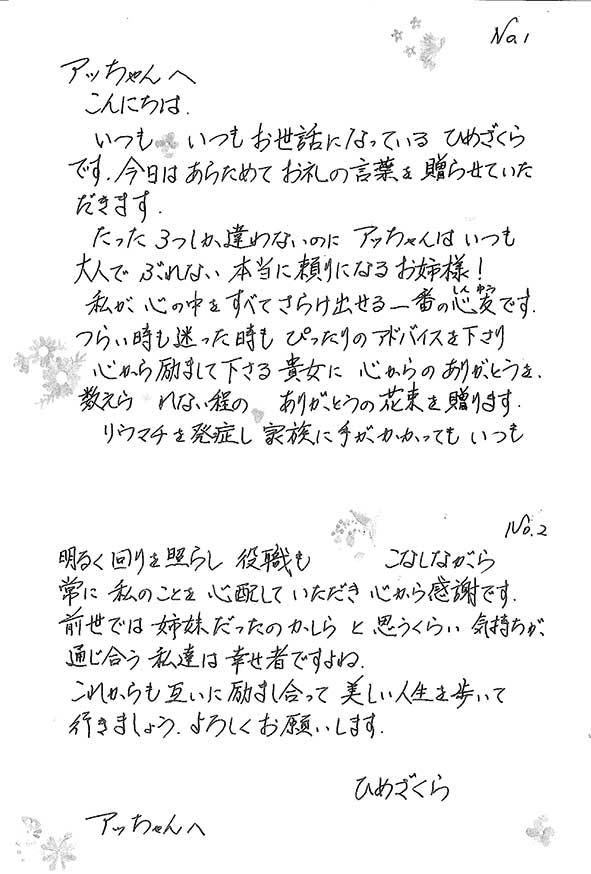 No.1
アッちゃんへ
こんにちは.
いつも いつもお世話になっている ひめざくら
です.今日はあらためて お礼の言葉を贈らせていた
だきます.
たった 3つしか違わないのに アッちゃんは いつも
大人で ぶれない 本当に頼りになるお姉様!
私が 心の中をすべてさらけ出せる一番の心友です.
しん ゆう
つらい時も迷った時も ぴったりのアドバイスを下さり
心から励まして下さる 貴女に 心からの ありがとうを.
数えら れない程の ありがとうの花束を贈ります.
リウマチを発症し 家族に手がかかっても いつも
No.2
明るく回りを照らし 役職も こなしながら
常に 私のことを 心配して いただき 心から感謝です.
前世では 姉妹だったのかしら と 思うくらい 気持ちが、
通じ合う 私達は 幸せ者ですよね.
これからも互いに励まし合って 美しい人生を歩いて
行きましょう.よろしくお願いします.
ひめざくら
アッちゃんへ